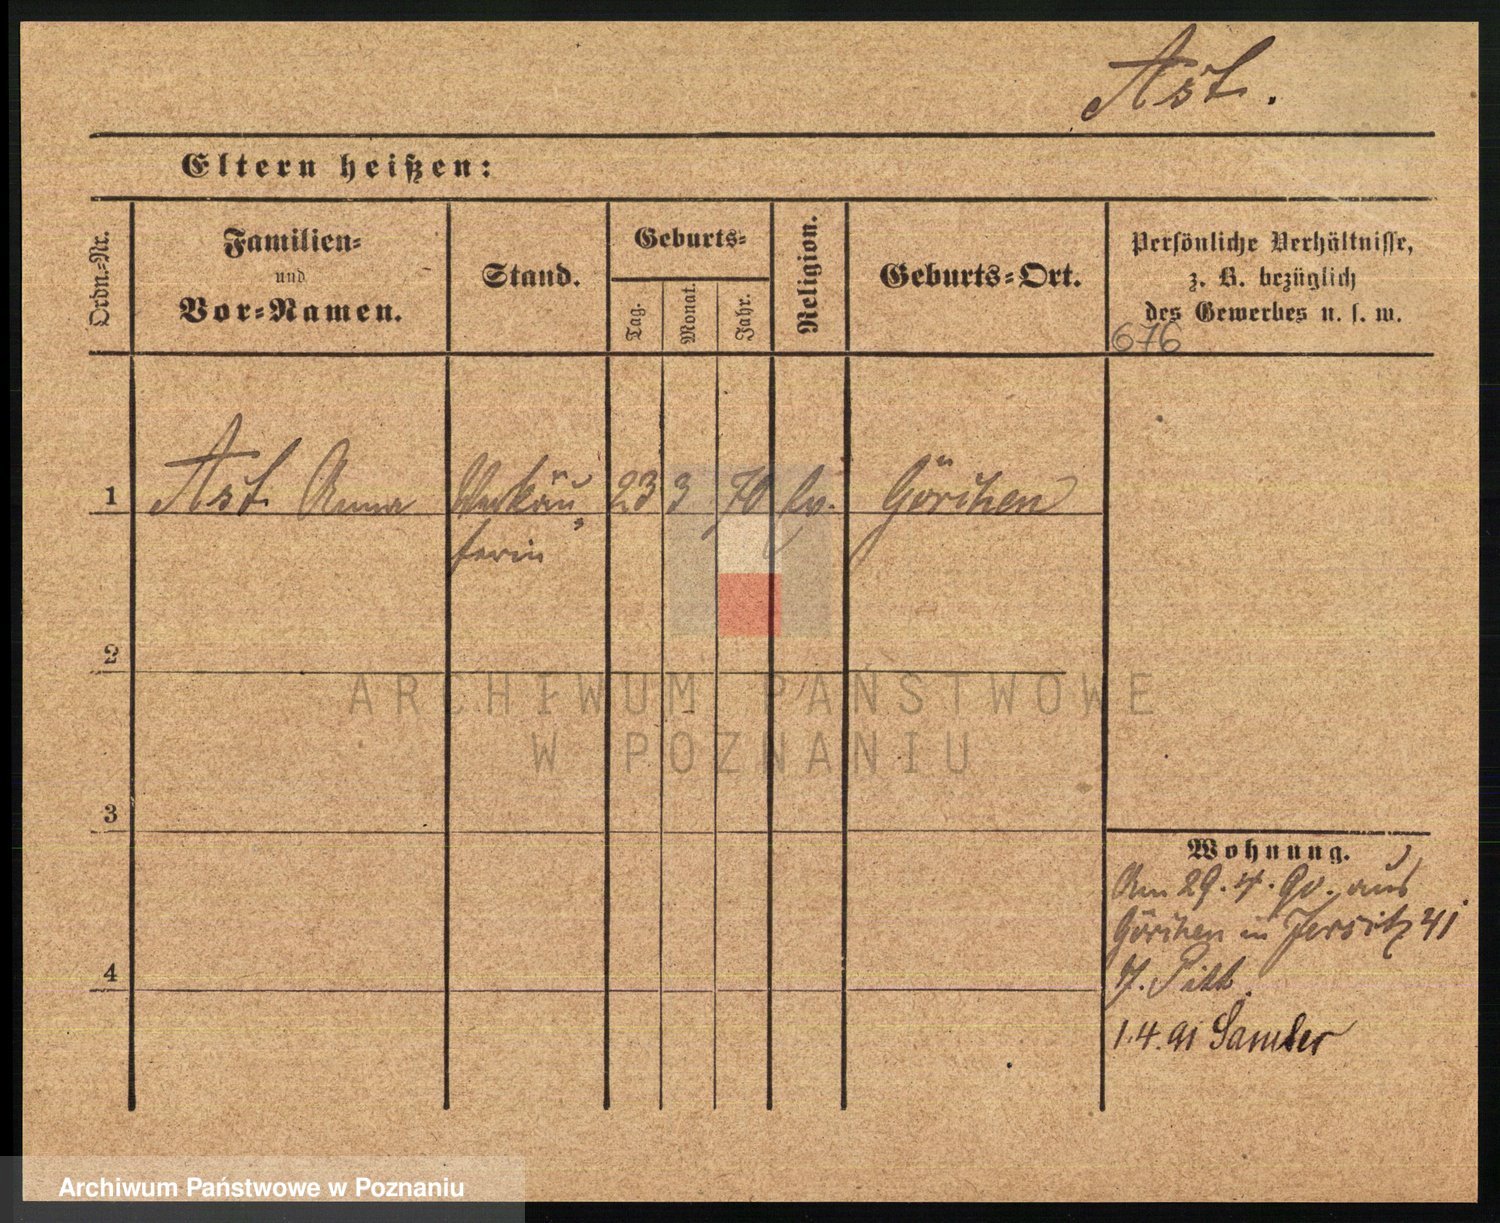 Ast.
Eltern heißen:
Ordn.-Nr.
Familien-
und
Vor-Namen.
Stand.
Geburts-
Tag.
Monat.
Jahr.
Religion.
Geburts-Ort.
Persönliche Verhältnisse,
z. B. bezüglich
des Gewerbes u. s. w.
676
1 Ast Anna Verkäu 23 3 70 Ev. Görchen
ferin
2
3
4
Wohnung.
Am 29. 4. 90. aus
Görchen in Jersitz 41
1.4.91 Samter
ARCHIWUM PAŃSTWOWE
W POZNANIU
Archiwum Państwowe w Poznaniu